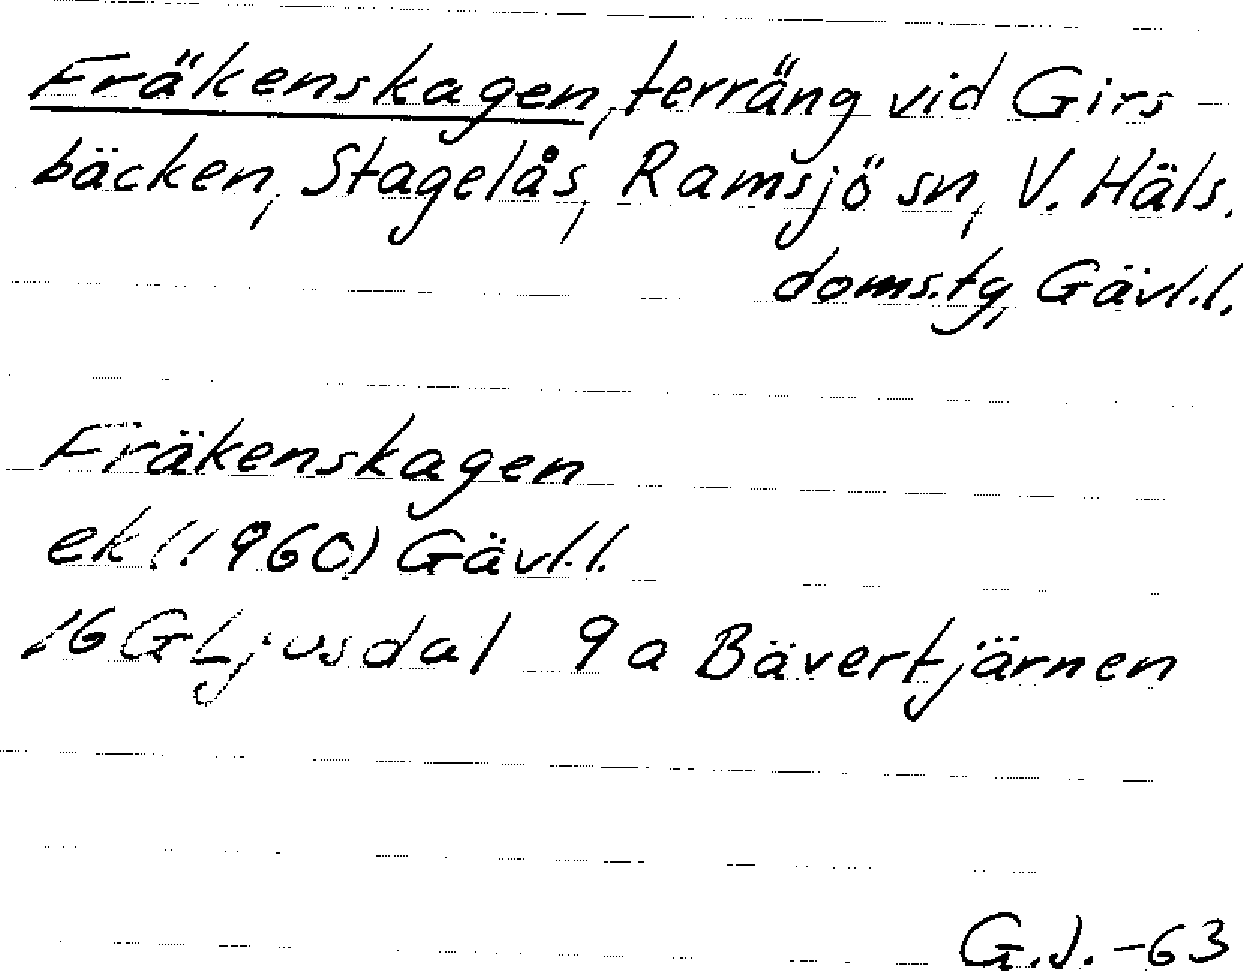 Fräkenskagen, terräng vid Girs-
bäcken, Stagelås, Ramsjö sn, V. Häls.
doms.tg, Gävl.l.
Fräkenskagen
ek (1960) Gävl.l.
16 G Ljusdal 9a Bävertjärnen
G.J. -63